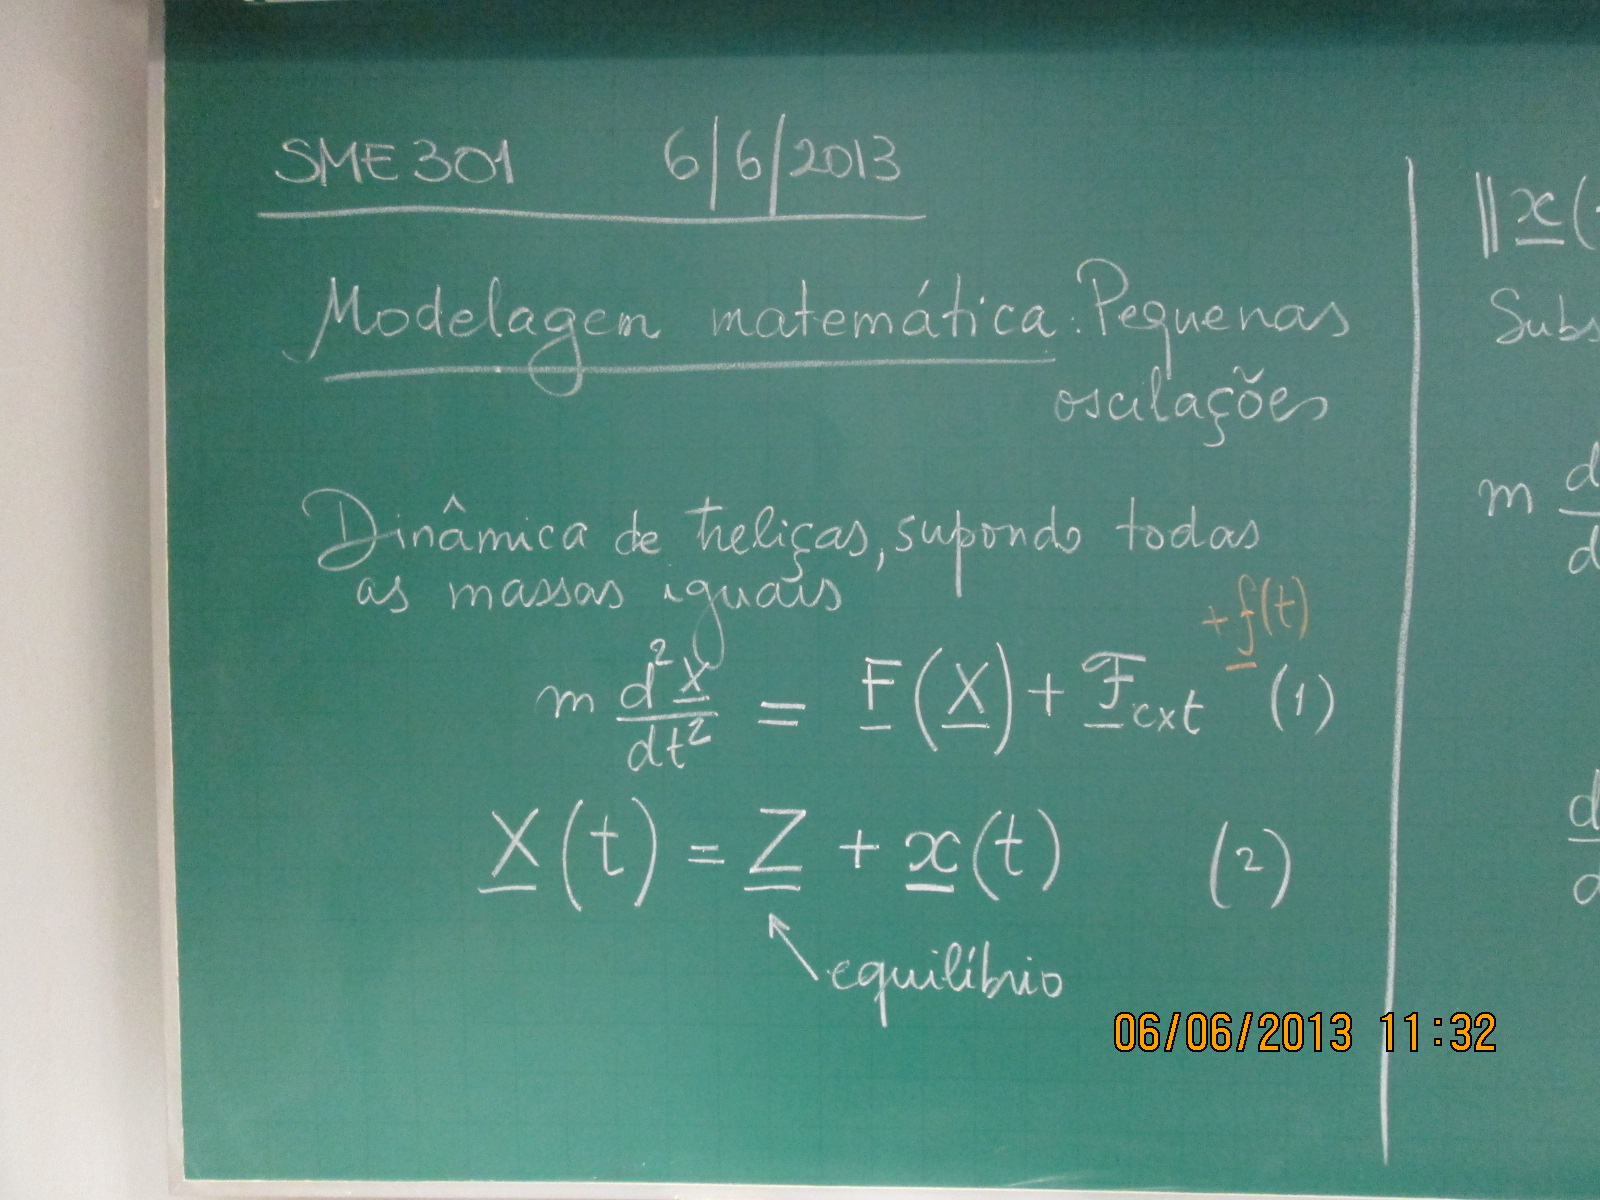 SME301 6/6/2013
Modelagem matemática: Pequenas
oscilações
Dinâmica de treliças, supondo todas
as massas iguais
+ f(t)
m d²X/dt² = F(X) + F_ext (1)
X(t) = Z + x(t) (2)
equilíbrio
06/06/2013 11:32
‖x(
Subs
m d
d
d
d